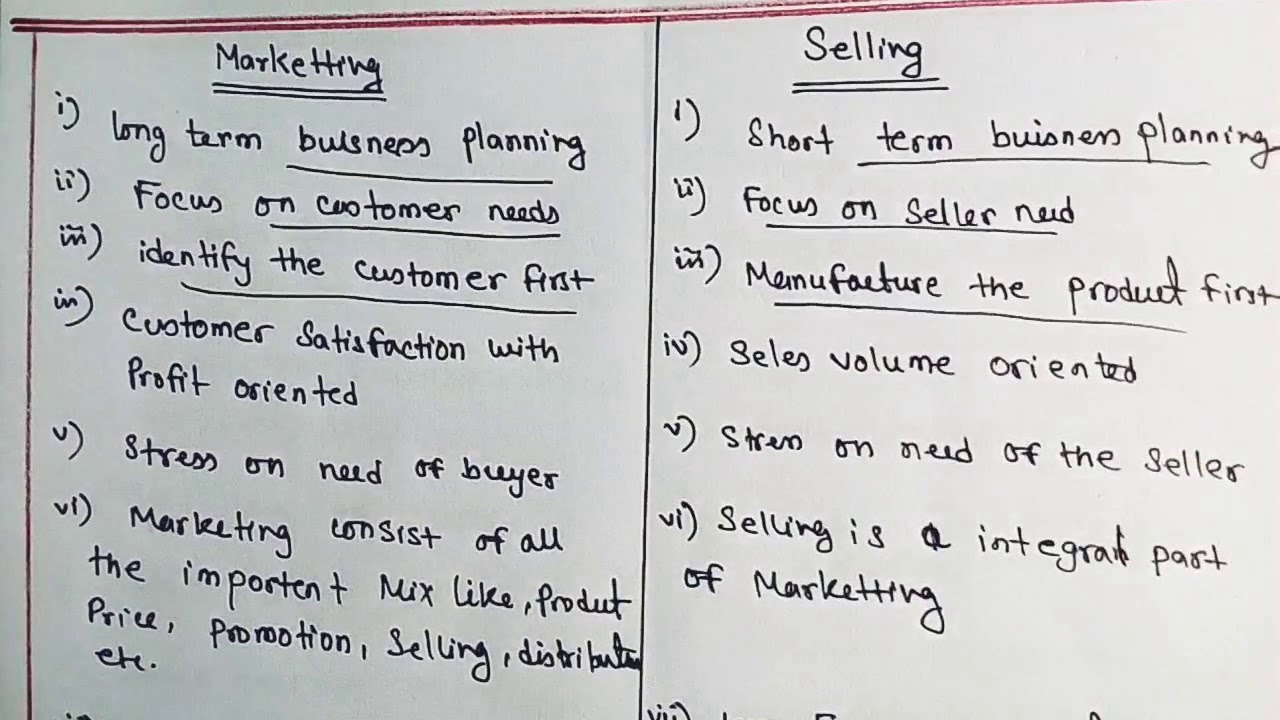 Marketting
i) long term buisness planning
ii) Focus on customer needs
iii) identify the customer first
iv) Customer Satisfaction with
Profit oriented
v) Stress on need of buyer
vi) Marketing consist of all
the importent Mix like, Produt
Price, promotion, Selling, distribution
etc.
Selling
i) Short term buisness planning
ii) Focus on Seller need
iii) Manufacture the product first
iv) Seles volume oriented
v) Stress on need of the Seller
vi) Selling is a integral part
of Marketting
vii)